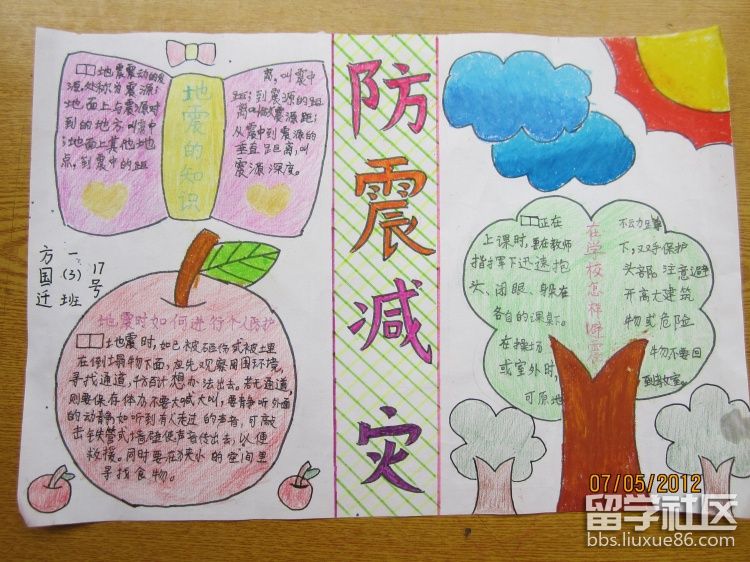 地震的知识
地震震动的发
源处称为震源;
地面上与震源对
到的地方叫震中
;地面上其他地
点,到震中的距
离,叫震中
距;到震源的距
离叫做震源距;
从震中到震源的
垂直距离,叫
震源深度。
方国迁
一(3)班
17号
地震时如何进行个人防护
地震时,如已被砸伤或被土里
在倒塌物下面,应先观察周围环境,
寻找通道,千方百计想办法出去。若无通道,
则要保存体力不要大喊大叫,要静听外面
的动静,如听到有人走过的声音,可敲
击铁管或墙碰使声音传出去,以便
救援。同时要在狭小的空间里
寻找食物。
防震减灾
在学校怎样避震
正在
上课时,要在教师
指挥下迅速抱
头、闭眼、躲在
各自的课桌下。
在操场
或室外时,
可原地
不动蹲
下,双手保护
头部 注意避
开高大建筑
物或危险
物不要回
到教室。
07/05/2012
留学社区
bbs.liuxue86.com